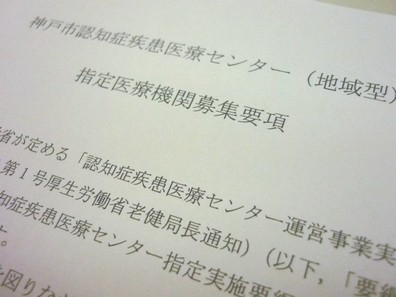 神戸市認知症疾患医療センター（地域型）
指定医療機関募集要項
省が定める「認知症疾患医療センター運営事業実
第１号厚生労働省老健局長通知）（以下，「要綱
知症疾患医療センター指定実施要綱
す。
を図りな